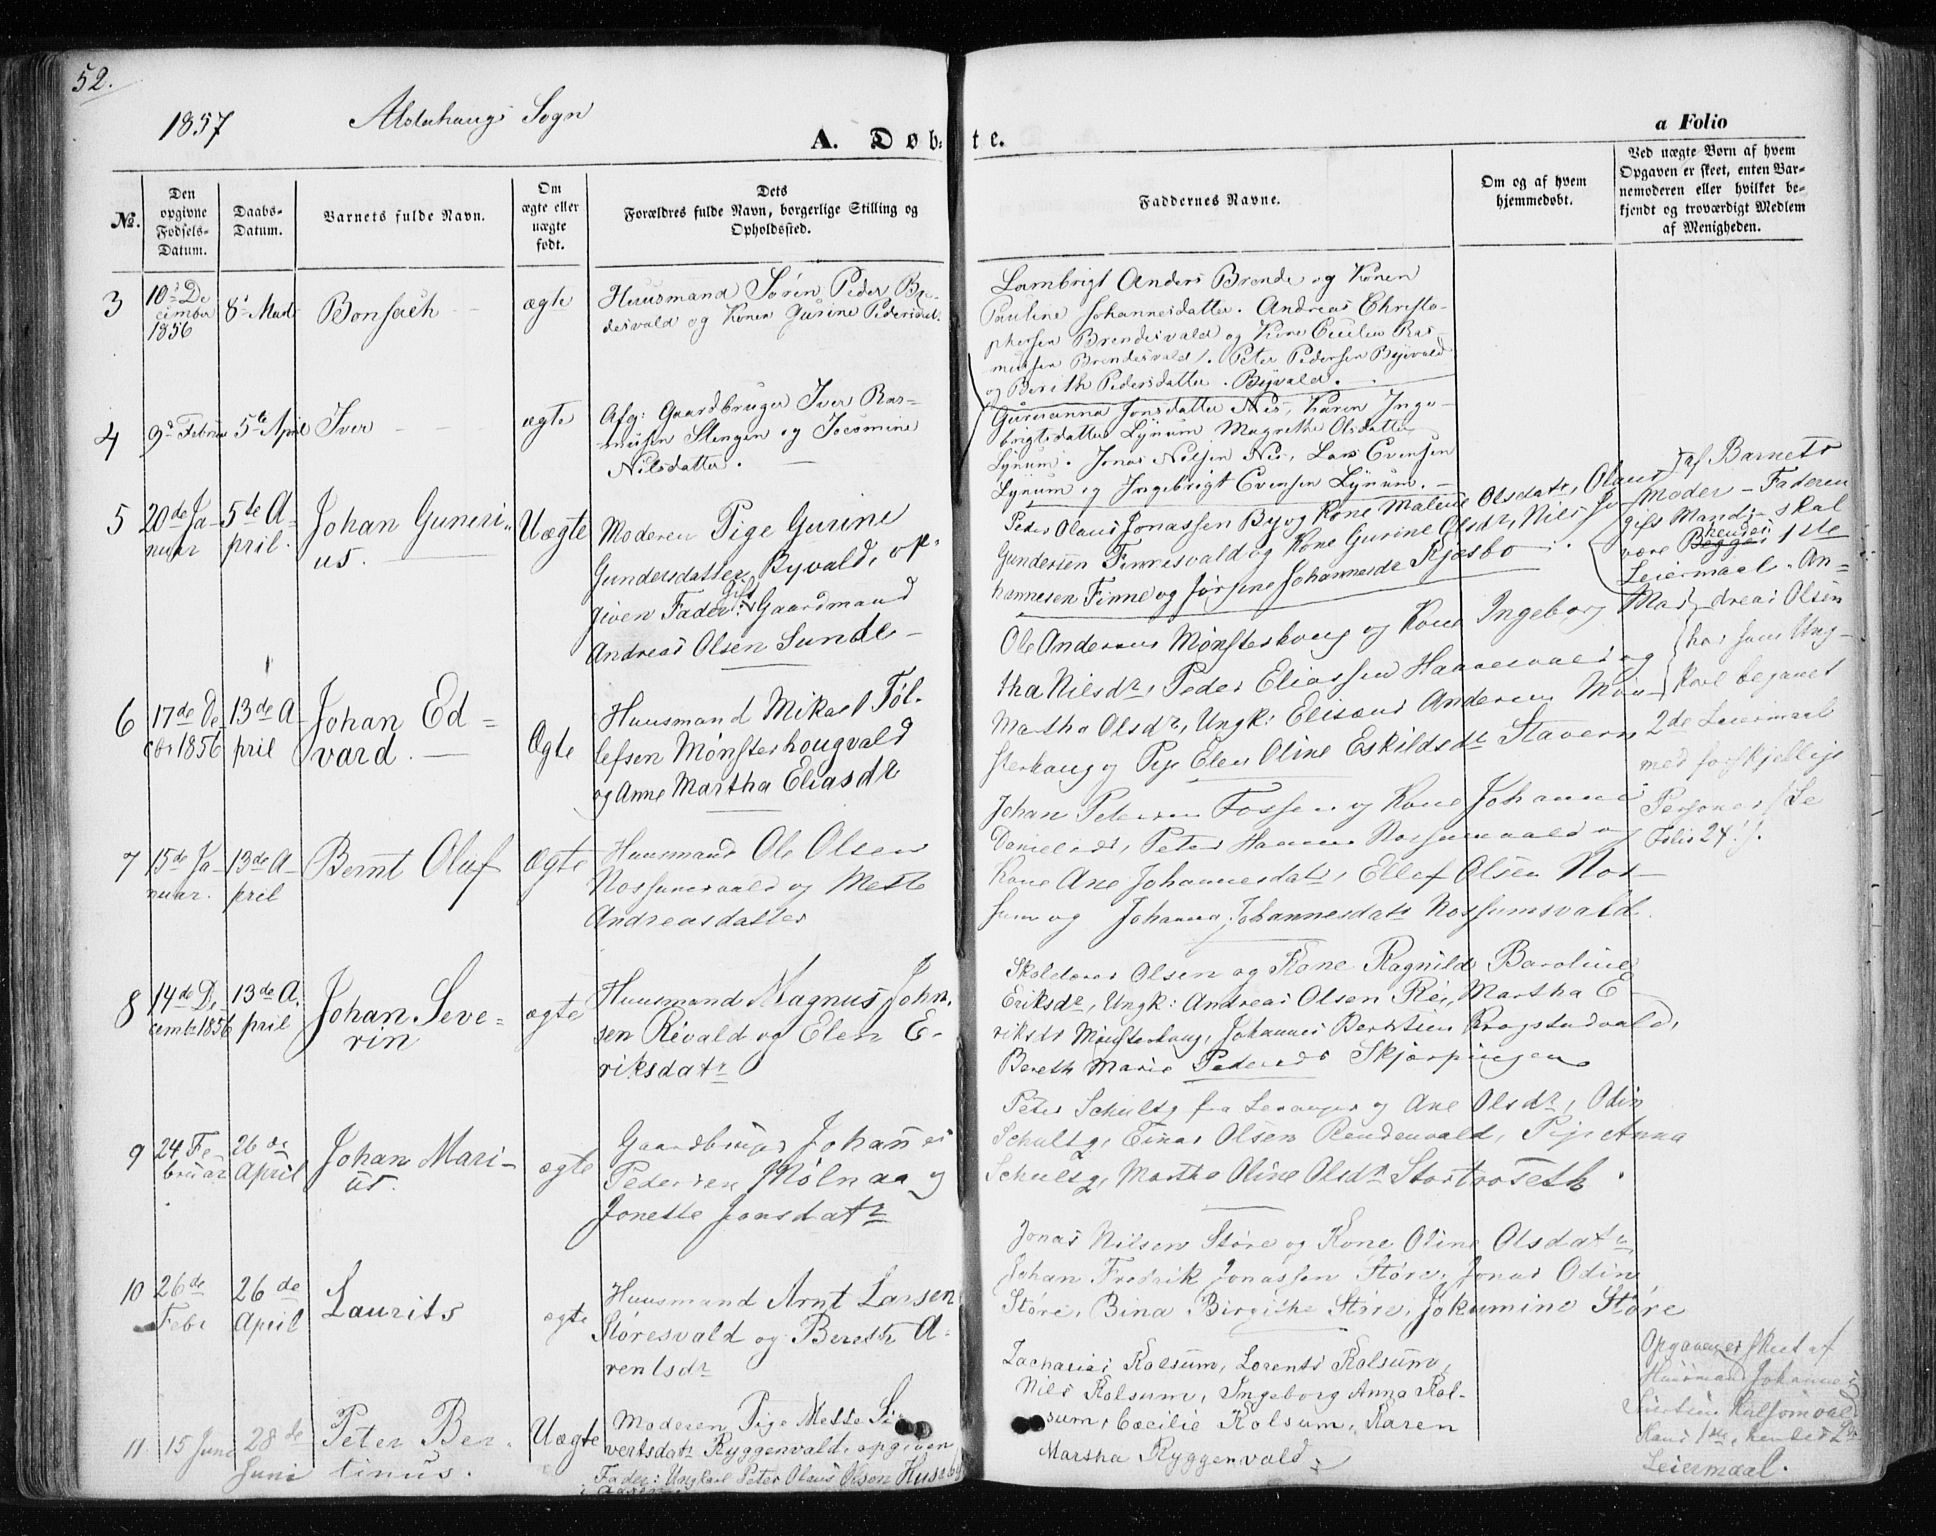 52.
1857
Alstahaugs Sogn
A. Døbte.
a Folio
No.
Den opgivne Fødsels-Datum.
Daabs-Datum.
Barnets fulde Navn.
Om ægte eller uægte født.
Dets Forældres fulde Navn, borgerlige Stilling og Opholdssted.
Faddernes Navne.
Om og af hvem hjemmedøbt.
Ved uægte Børn af hvem Opgaven er skeet, enten Barnemoderen eller hvilket bekjendt og troværdigt Medlem af Menigheden.
3
10de De
cember
1856
8de Marts
Bonsach
ægte
Huusmand Sören Peder By
desvald og Konen Gurine Pedersdat.
Lambrigt Anders Brende og Konen
Pauline Johannesdatter. Andreas Christo-
phersen Brendesvald og Kone Cecilia Ras-
mussen Brendesvald. Peter Pedersen Byvald
og Berith Pedersdatter. Byvald.
4
9de Februar
5te April
Iver
ægte
Afg: Gaardbruger Iver Ras-
mussen Slengen og Jocomine
Nilsdatter.
Gurianna Jonsdatter Nes, Karen Inge-
brigtsdatter Lynum Magrethe Olsdatter
Lynum. Jonas Nilsen Nes, Lars Evensen
Lynum og Ingebrigt Evensen Lynum.
5
20de Ja-
nuar
5te A-
pril.
Johan Guneri-
us.
Uægte
Moderen Pige Gurine
Gundersdatter Byvald, op-
given Fader: Gift Gaardmand
Andreas Olsen Sunde
Peder Olaus Jonassen By og Kone Malene Olsdatr, Olaus
Gundersen Finnesvald og Kone Gurine Olsdr, Nils Jo-
hannesen Finne og Jørgine Johannesdr Kjæsbo
af Barnets
Moder - Faderen
gift Mand - skal
være Begges 1ste
Leiermaal. An-
dreas Olsen
har som Ung-
karl begaaet
2de Leiermaal
med forskjellige
Personer (Se
Folio 24).
6
17de De
cbr 1856
13de A-
pril
Johan Ed-
vard.
Ægte
Huusmand Mikael Tøl-
lefsen Mønsterhougvald
og Anne Martha Eliasdr
Ole Andersen Mønsterhoug og Kone Ingeborg Mar-
tha Nilsdr, Peder Eliassen Haavesvald og
Martha Olsdr, Ungk: Elisæus Andersen Møn-
sterhaug og Pige Elen Oline Eskildsdr Stavern
7
15de Ja
nuar.
13de A-
pril
Bernt Oluf
Ægte
Huusmand Ole Olsen
Nossumsvald og Mette
Andreasdatter
Johan Petersen Fossen og Kone Johanne
Danielsdr, Peter Hansen Nossumsvald og
Kone Ane Johannesdatr, Ellef Olsen Nos-
sum og Johanna Johannesdatr Nossumsvald.
8
14de De
cembr 1856
13de A.
pril
Johan Seve-
rin
ægte
Huusmand Magnus John-
sen Rivald og Elen E-
riksdatr
Olsen og Kone Ragnild Baroline
Eriksdr, Ungk: Andreas Olsen Rei, Martha E
riksdr Mønsterhaug, Johannes Berntsen Krogstadvald,
Bereth Marie Pedersdr Skjerpingen
9
24 Fe-
bruar
26de
April
Johan Mari-
us.
ægte
Gaardbruger Johannes
Pedersen Mølnaa og
Jonette Jonsdatr
Peter Schultz fra Levanger og Ane Olsdr, Odin
Schultz, Einar Olsen Rendenvald, Pige Anna
Schultz, Martha Oline Olsdr Stortroseth
10
26de
Febr
26de
April
Laurits
ægte
Huusmand Arnt Larsen
Støresvald og Bereth A-
rentsdr
Jonas Nilsen Støre og Kone Oline Olsdatr,
Johan Fredrik Jonassen Støre, Jonas Odin
Støre, Bina Birgithe Støre, Jokumine Støre
11.
15 Juni
28de
Juni
Peter Ber-
tinus.
Uægte
Moderen Pige Mette Si-
vertsdatr Ryggenvald, opgiven
Fader: Ungkarl Peter Olaus Olsen Huseby
Zacharias Kolsum, Lorents Kolsum,
Nils Kolsum, Ingeborg Anna Kol-
sum, Cæcilie Kolsum, Karen
Martha Ryggenvald
Opgaven er skeet af
Huusmand Johannes
Siversen Kalsomvald
Hans 1ste, hendes 2det
Leiermaal.